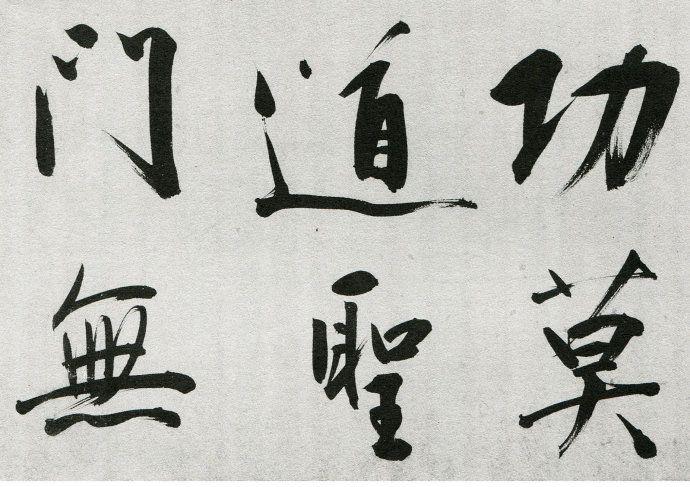 功莫
道聖
门無